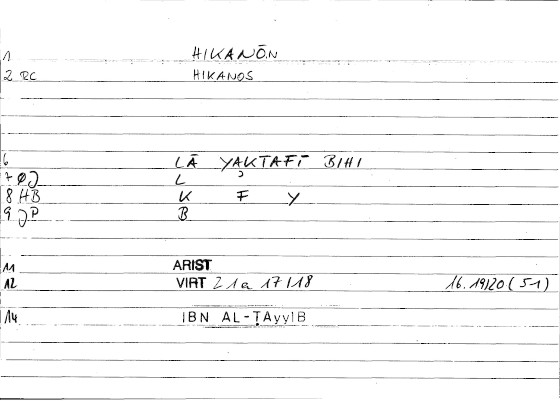 1 HIKANŌN
2 RC HIKANOS
6 LĀ YAKTAFĪ BIHI
7 ØJ L ʾ
8 HB K F Y
9 JP B
11 ARIST
12 VIRT 21a 17/18 16.19/20 (5-1)
14 IBN AL-ṬAyyIB